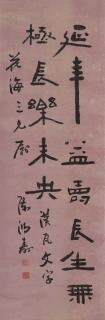 延年益壽長生無
極長樂未央 漢瓦文字
花海三兄屬
陳鴻壽